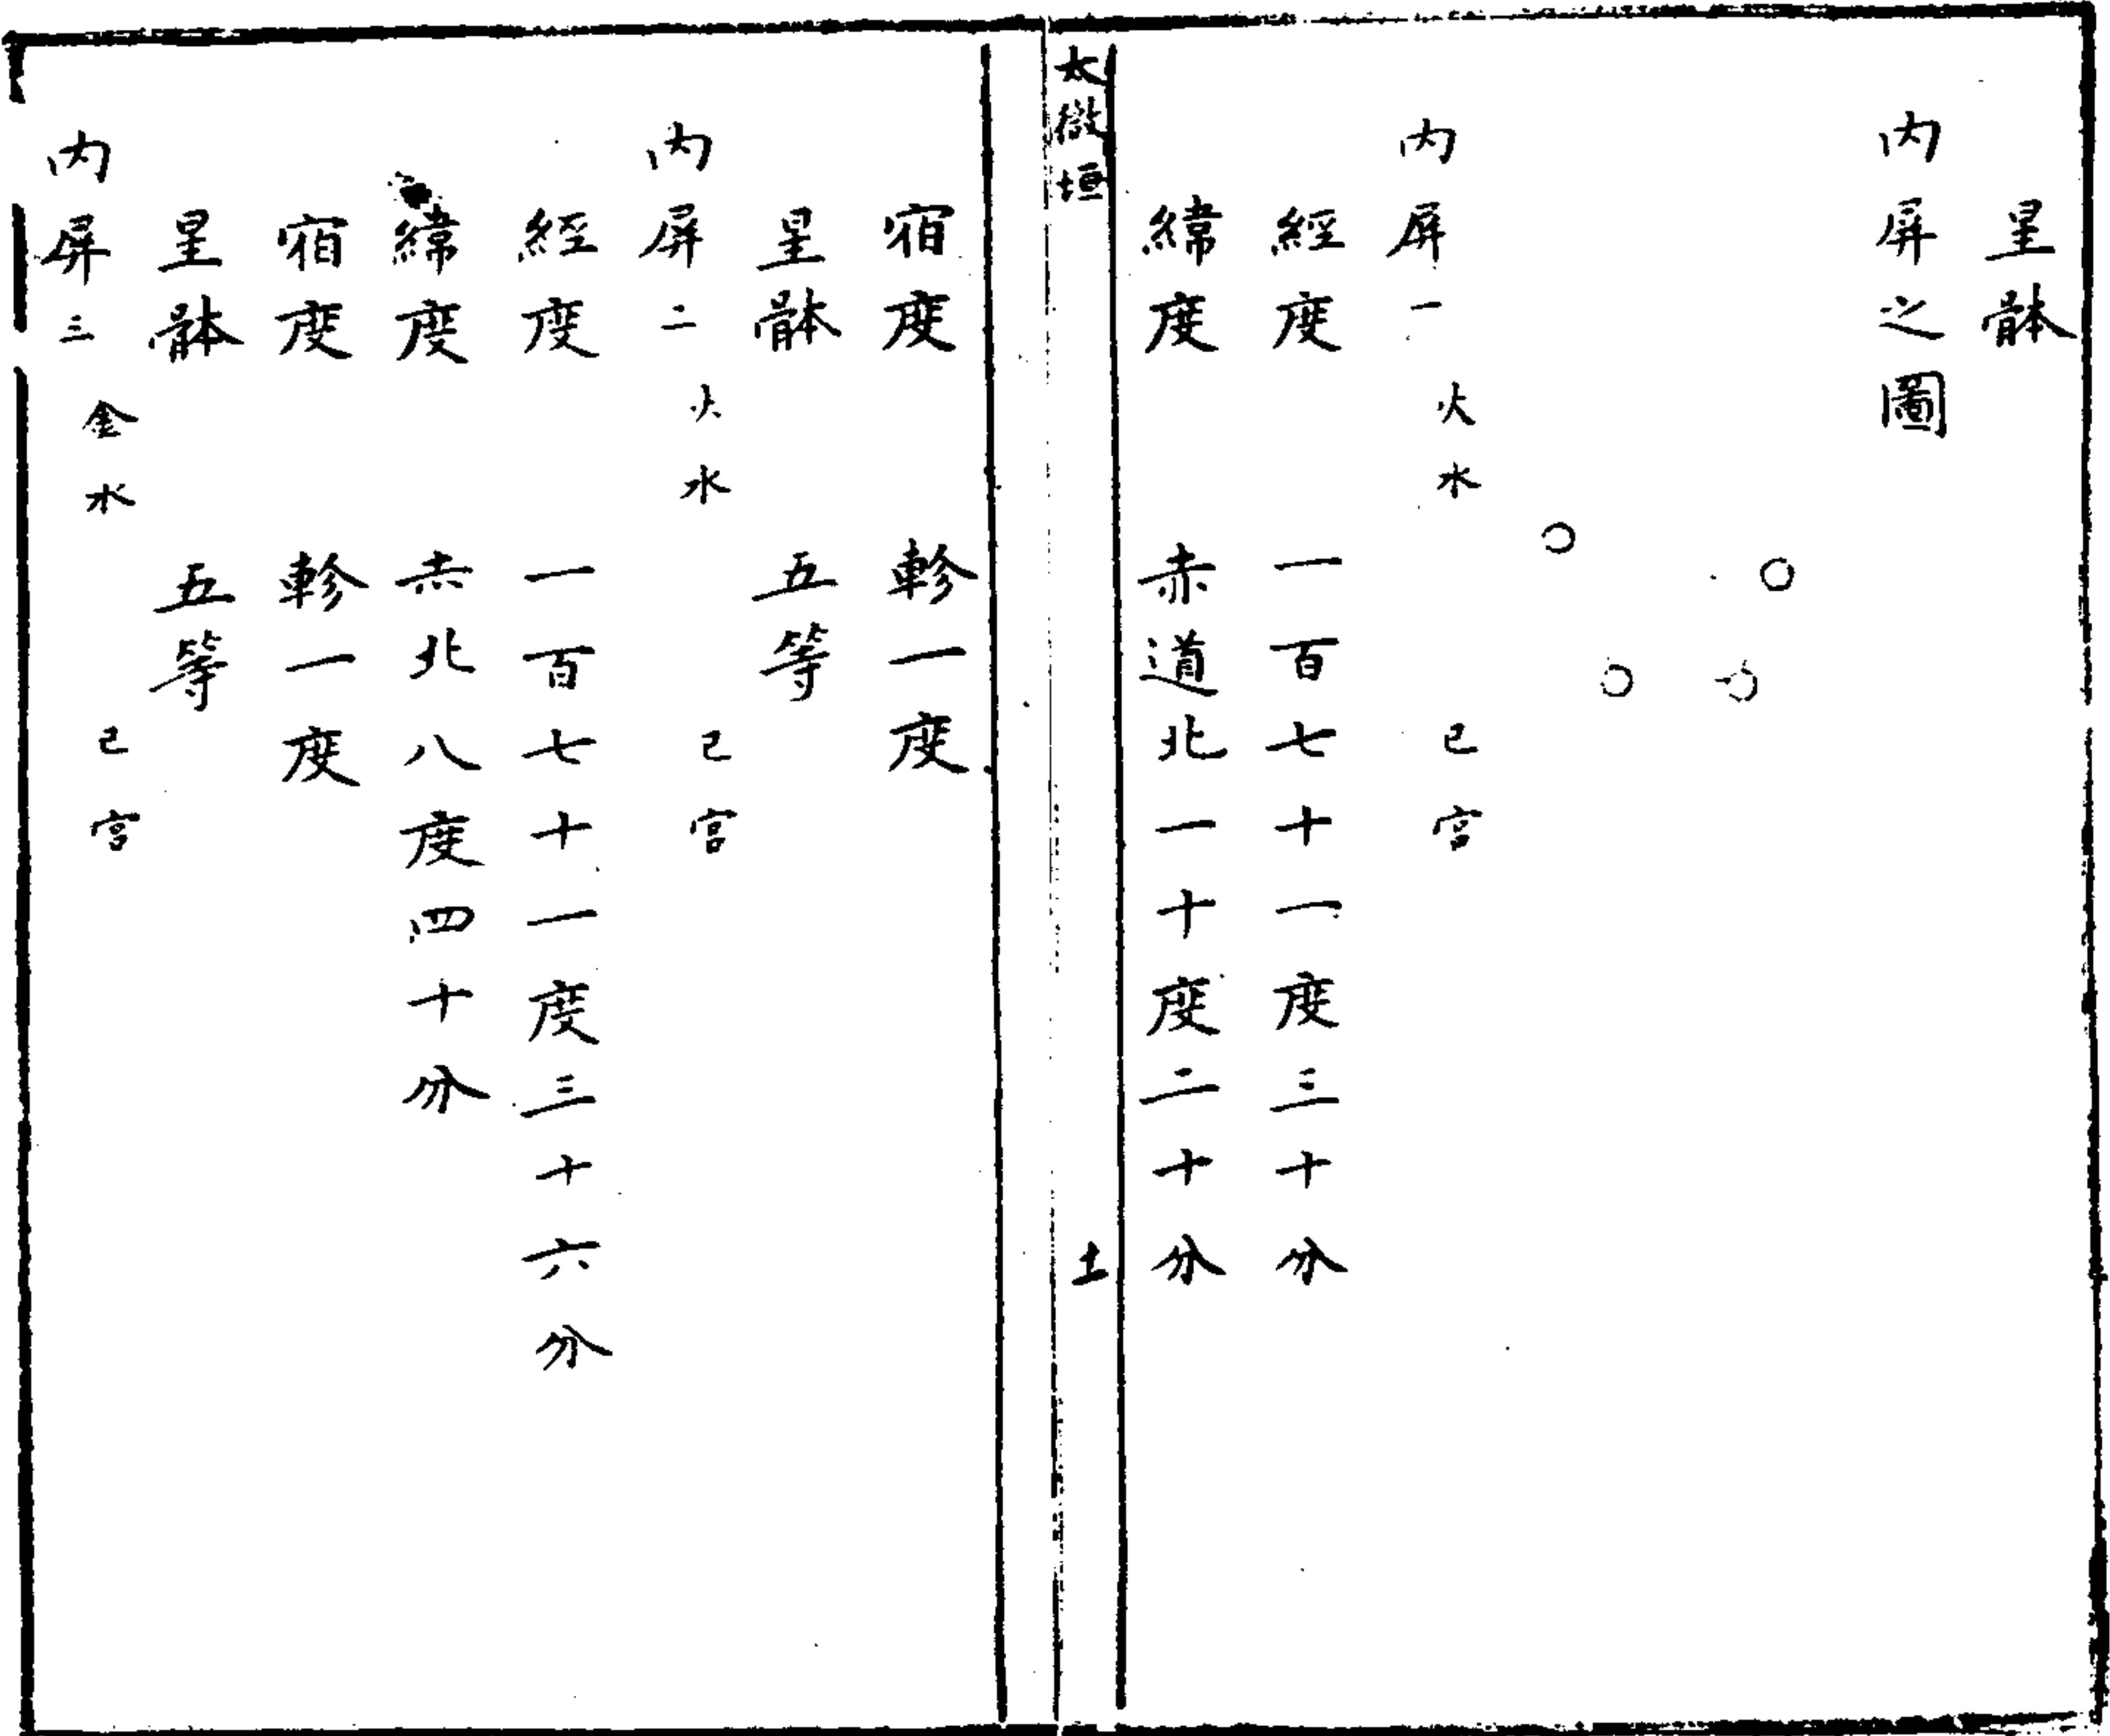 星骵
内屏之圖
内屏一 火水 巳宫
經度 一百七十一度三十分
緯度 赤道北一十度二十分
太微垣 土
宿度 軫一度
星骵 五等
内屏二 火水 巳宫
經度 一百七十一度三十六分
緯度 赤北八度四十分
宿度 軫一度
星骵 五等
内屏三 金水 巳宫